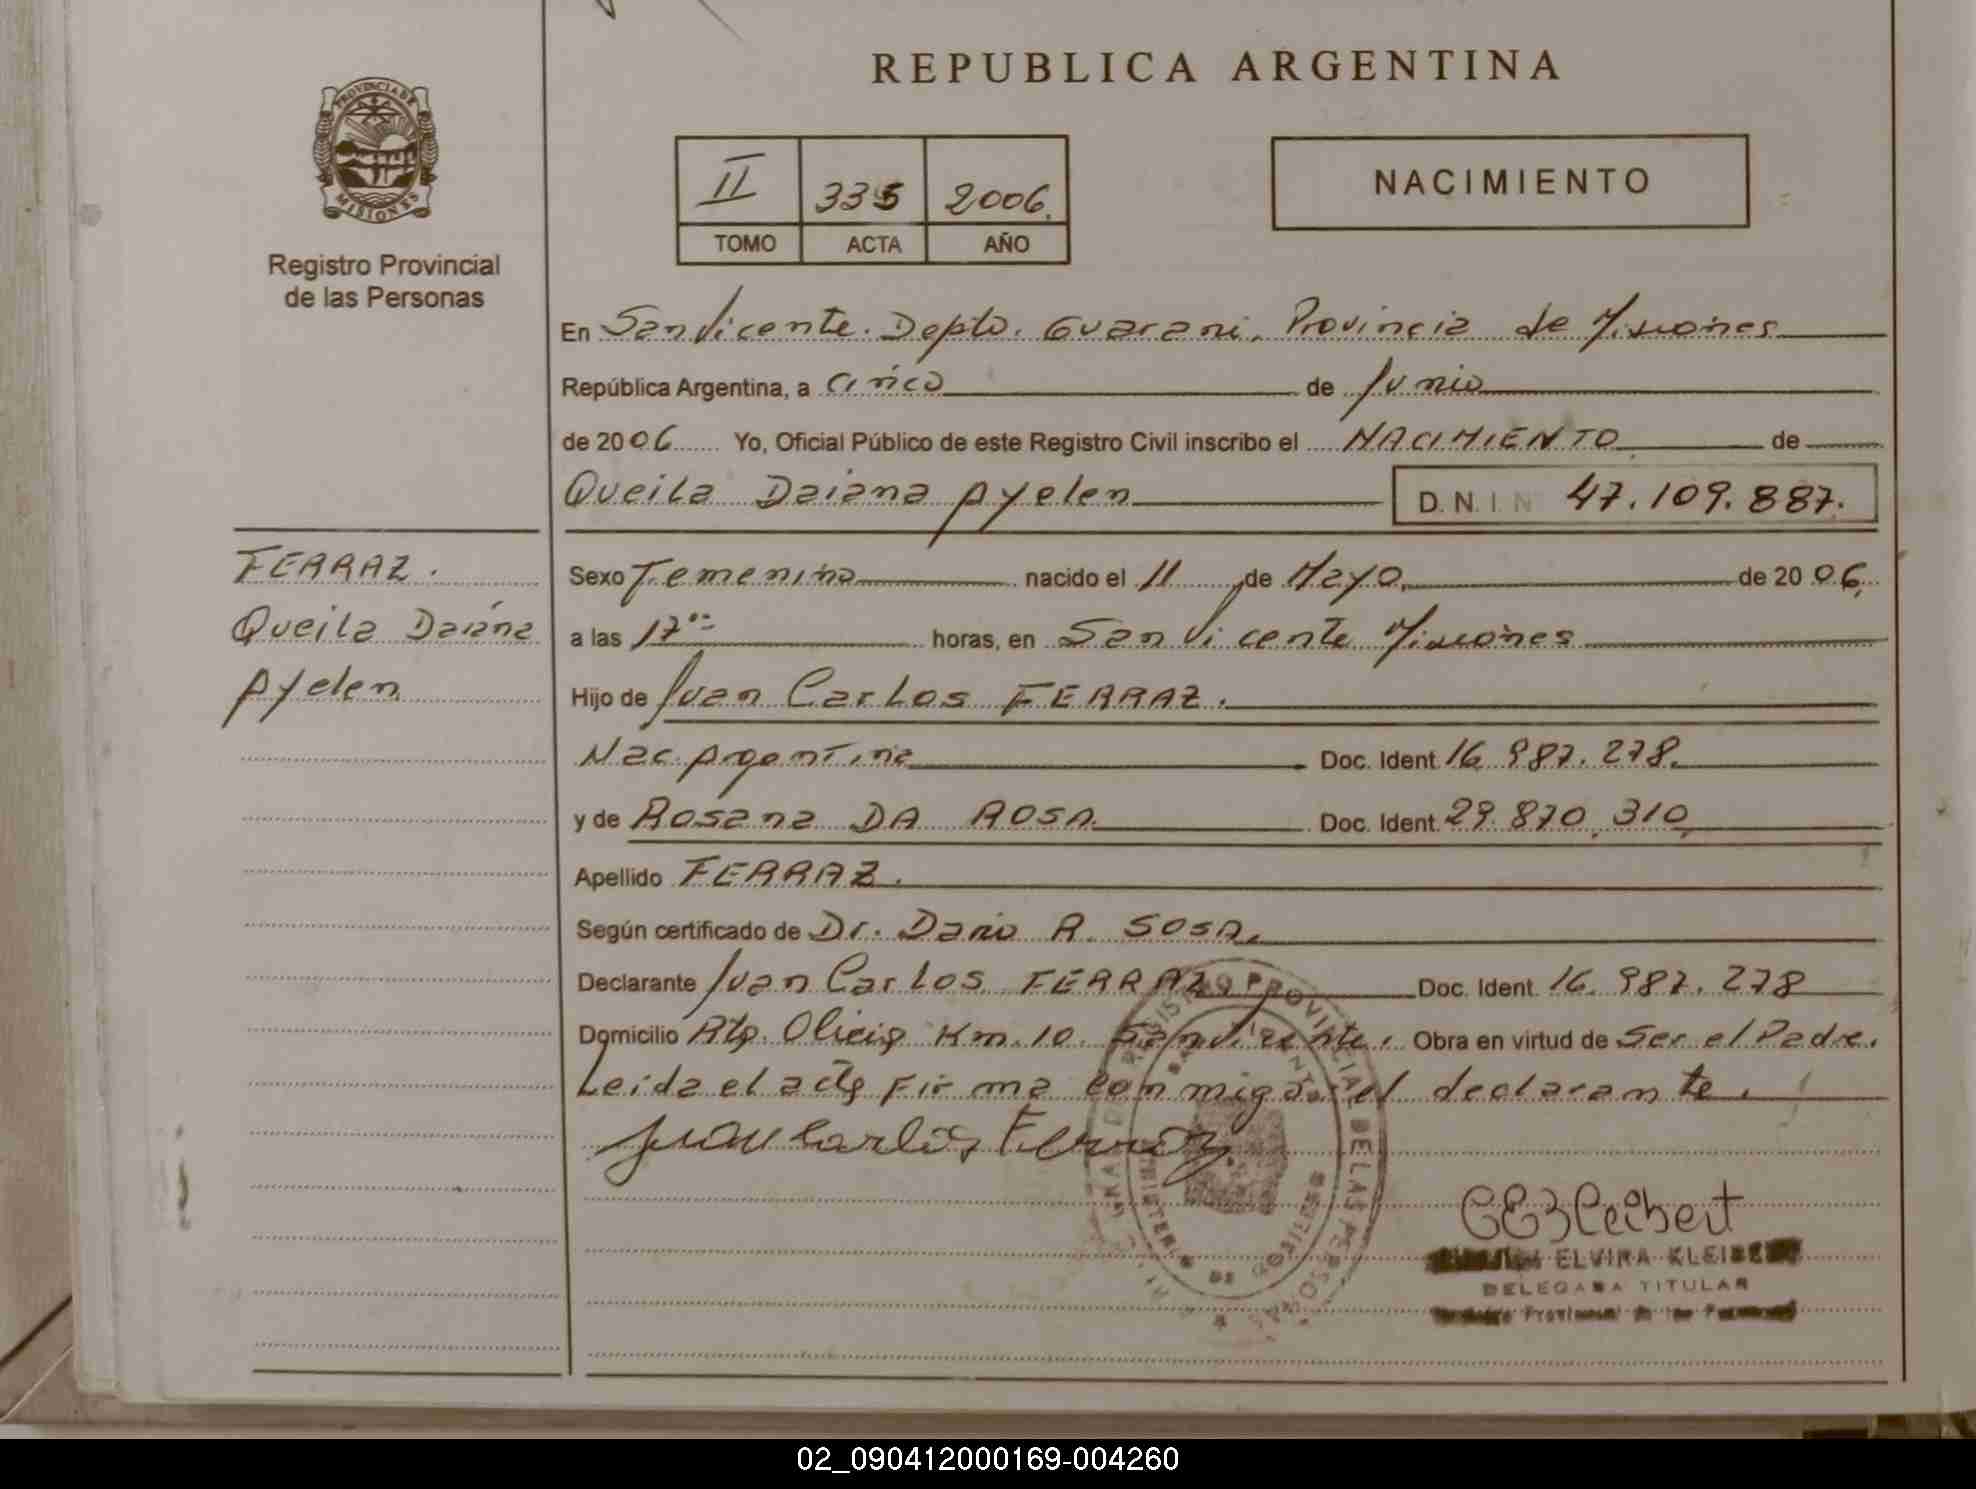 REPUBLICA ARGENTINA
PROVINCIA DE
MISIONES
Registro Provincial
de las Personas
II 335 2006.
TOMO ACTA AÑO
NACIMIENTO
En San Vicente. Depto. Guarani, Provincia de Misiones
República Argentina, a cinco de Junio
de 2006 Yo, Oficial Público de este Registro Civil inscribo el NACIMIENTO de
Queila Daiana Ayelen D.N.I.N 47.109.887.
FERRAZ.
Queila Daiana
Ayelen
Sexo Femenino nacido el 11 de Mayo de 2006.
a las 17 horas, en San Vicente Misiones
Hijo de Juan Carlos FERRAZ.
Nac. Argentina Doc. Ident. 16.987.278.
y de Rosana DA ROSA Doc. Ident. 29.870.310
Apellido FERRAZ.
Según certificado de Dr. Dario R. SOSA.
Declarante Juan Carlos FERRAZ Doc. Ident. 16.987.278
Domicilio Km. 10. San Vicente. Obra en virtud de Ser el Padre.
Leida el acta firma conmigo el declarante.
Juan Carlos Ferraz
REGISTRO PROVINCIAL DE LAS PERSONAS
ELVIRA KLEIBERT
DELEGADA TITULAR
Registro Provincial de las Personas
02_090412000169-004260